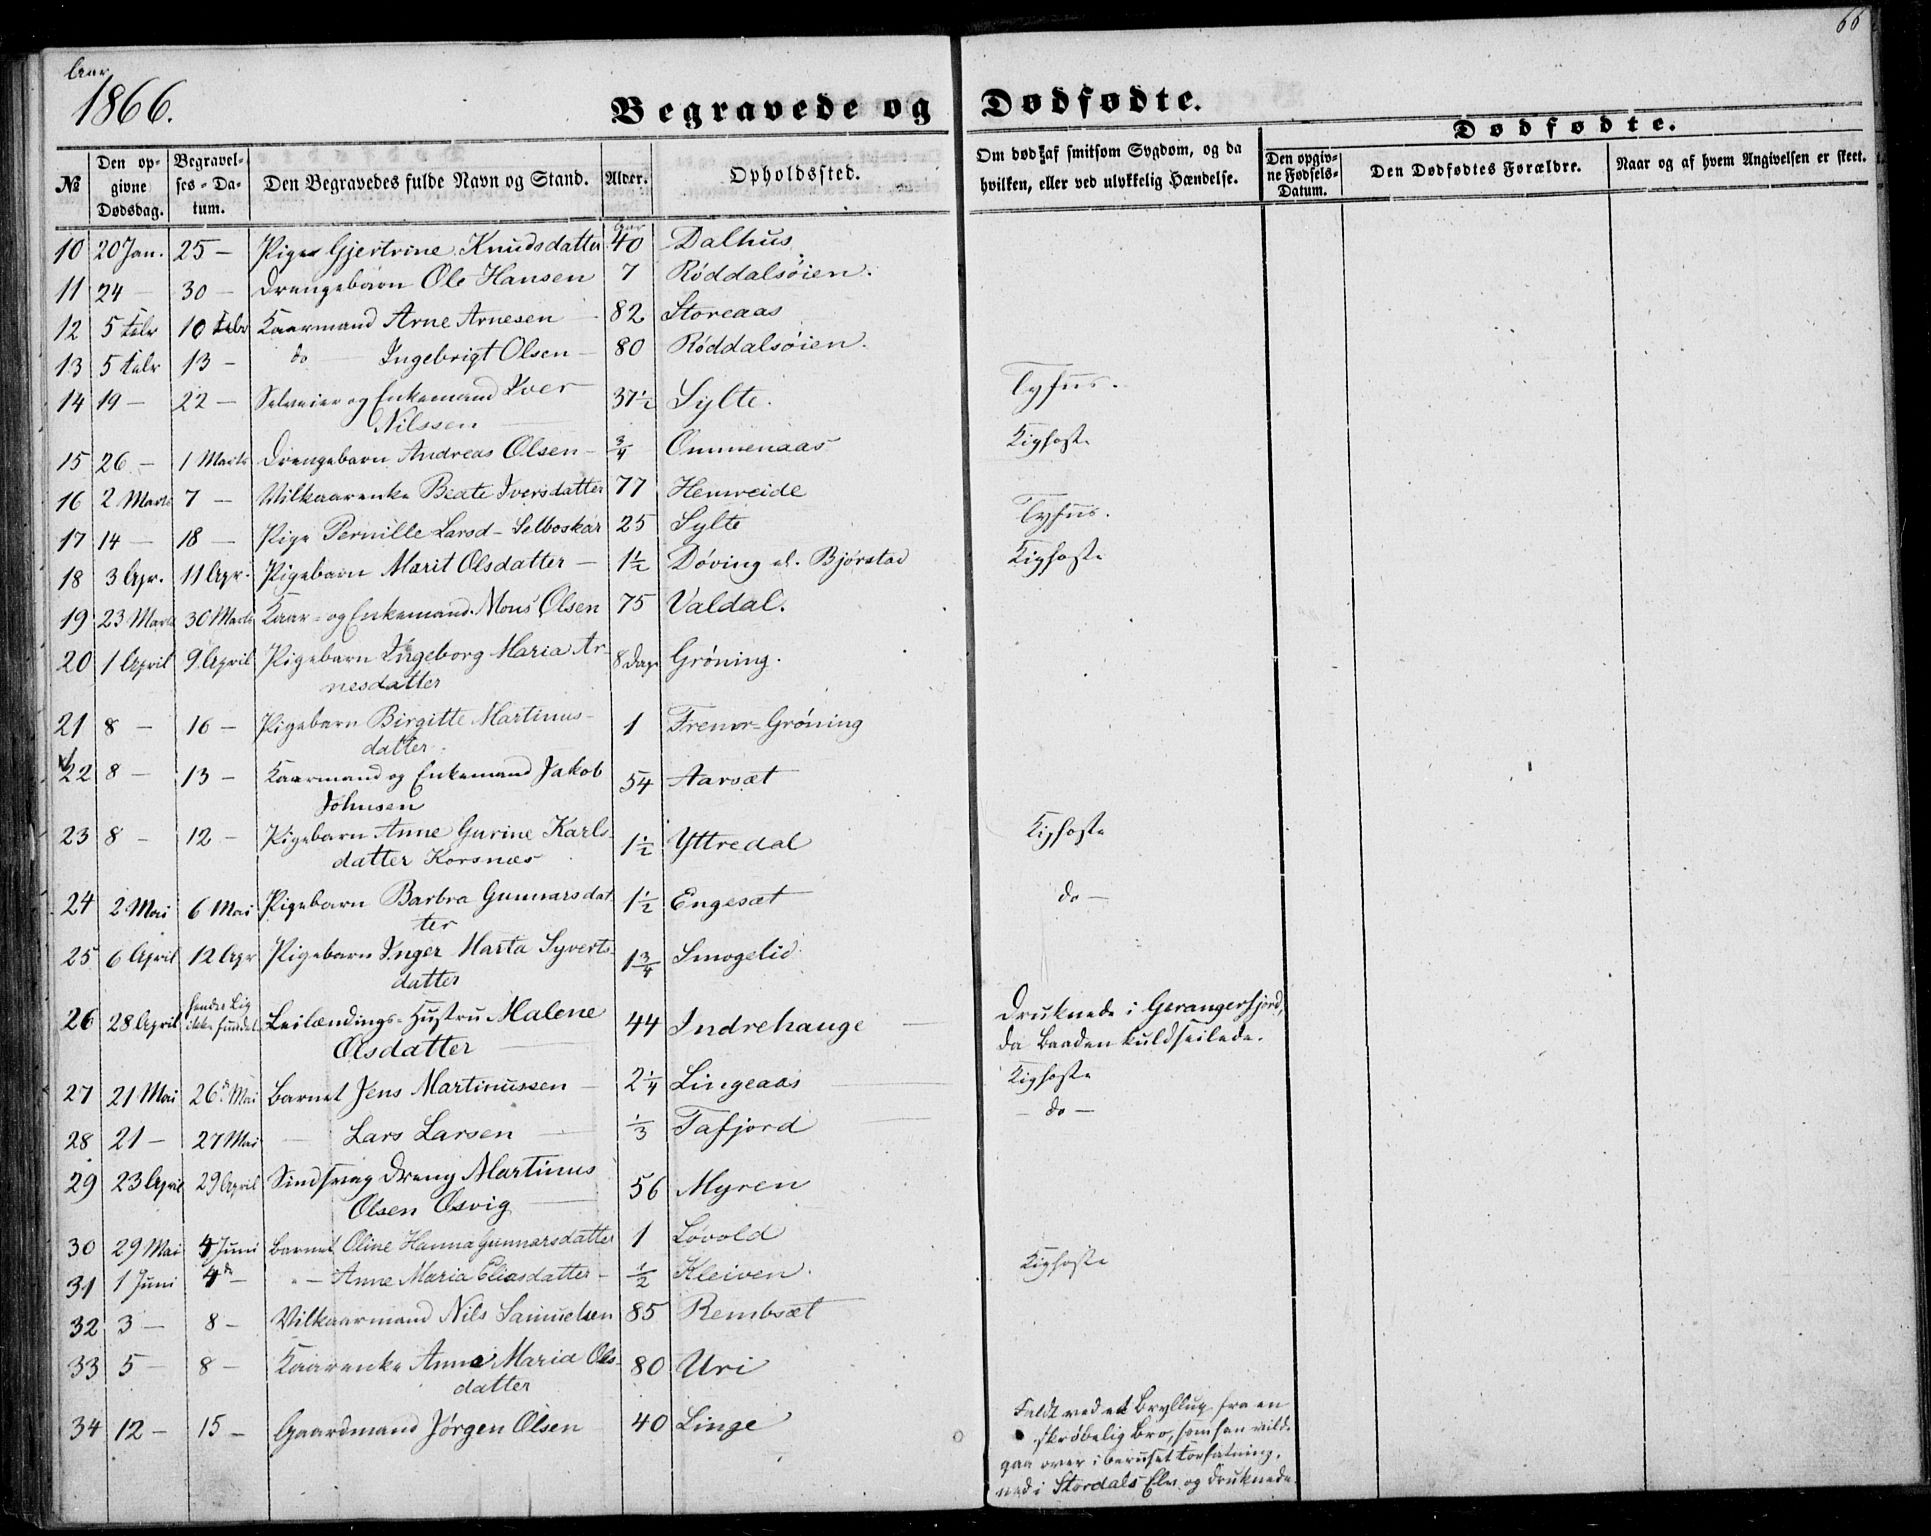 66
Aar
1866.
Begravede og Dødfødte.
Dødfødte.
№ Den opgivne Dødsdag. Begravelses-Datum. Den Begravedes fulde Navn og Stand. Alder. Opholdssted. Om død af smitsom Sygdom, og da hvilken, eller ved ulykkelig Hændelse. Den opgivne Fødsels-Datum. Den Dødfødtes Forældre. Naar og af hvem Angivelsen er skeet.
Aar
10 20 Jan. 25 – Pige Gjertrine Knudsdatter 40 Dalhus
11 24 – 30 – Drengebarn Ole Hansen 7 Røddalsøien.
12 5 Febr 10 Febr Kaarmand Arne Arnesen 82 Storeaas
13 5 Febr 13 – do Ingebrigt Olsen – 80 Røddalsøien.
14 19 – 22 – Selveier og Enkemand Iver 37½ Sylte. Tyfus.
Nilssen
15 26 – 1 Marts Drengebarn Andreas Olsen – ¾ Ommenaas Kighoste
16 2 Marts 7 – Vilkaarenke Beate Iversdatter 77 Hemreide
17 14 – 18 – Pige Pernille Larsd – Selboskar 25 Sylte Tyfus.
18 3 Apr. 11 Apr. Pigebarn Marit Olsdatter – 1½ Døving el. Bjørstad Kighoste
19 23 Marts 30 Marts Kaar- og Enkemand Mons Olsen 75 Valdal.
20 1 April 9 April Pigebarn Ingeborg Maria Ar- 8 Dage Grøning.
nesdatter
21 8 – 16 – Pigebarn Birgitte Martinus- 1 Fremr-Grøning
datter
22 8 – 13 – Kaarmand og Enkemand Jakob 54 Aarsæt
Johnsen
23 8 – 12 – Pigebarn Anne Gurine Karls 1½ Yttredal Kighoste
datter Korsnæs
24 2 Mai 6 Mai Pigebarn Barbra Gunnarsdat 1½ Engesæt do –
ter
25 6 April 12 Apr Pigebarn Inger Marta Syverts- 1¾ Smogelid
datter
26 28 April hendes Lig ikke fundet Leilændings-Hustru Malene 44 Indrehauge Druknede i Gerangerfjord,
Olsdatter da Baaden kuldseilede.
27 21 Mai 26de Mai Barnet Jens Martinussen – 2¼ Lingeaas Kighoste
28 21 – 27 Mai – Lars Larsen – ⅓ Tafjord – do –
29 23 April 29 April Sindsvag Dreng Martinus 56 Myren
Olsen Osvig
30 29 Mai 4 Juni Barnet Oline Hanna Gunnarsdatter 1 Løvold
31 1 Juni 4de – " – Anne Maria Eliasdatter – ½ Kleiven. Kighoste
32 3 – 8 – Vilkaarmand Nils Samuelsen 85 Rembsæt
33 5 – 8 – Kaarenke Anne Maria Ols- 80 Uri
datter
34 12 – 15 – Gaardmand Jørgen Olsen 40 Linge Faldt ved et Bryllup fra en
skrøbelig Bro, som han vilde
gaa over i beruset Forfatning,
ned i Stordals Elv og druknede